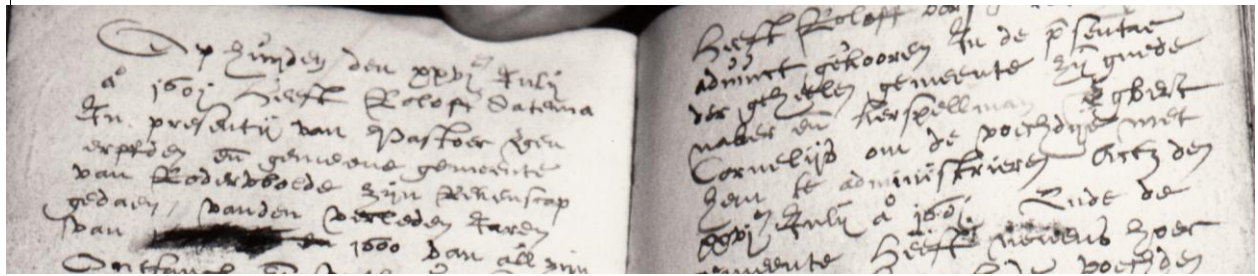 Op huijden den xxvj Julij
a° 1601 heeft Roloff Datema
In presentij van Pastoer Egen
erffden en gemeene gemeente
van Rodervolde zijn Rekenscap
gedaen, vanden verleden Jaren
van 1600 van all zijn
Ontfanck
Heeft Roloff
adiunct gekooren In de presentae
der gehielen gemeente zij guede
naber en kerspellman Egbert
Cornelijs om de voechdije met
hem te administrieren Actz den
xxvj Julij a° 1601. Ende de
gemeente Heeft neuens hoer